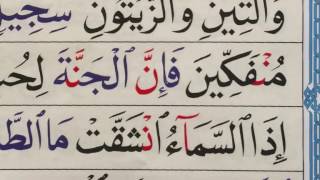 وَالتِّينِ وَالزَّيْتُونِ سِجِّيلٍ
مُنْفَكِّينَ فَإِنَّ الْجَنَّةَ
إِذَا السَّمَآءُ انْشَقَّتْ